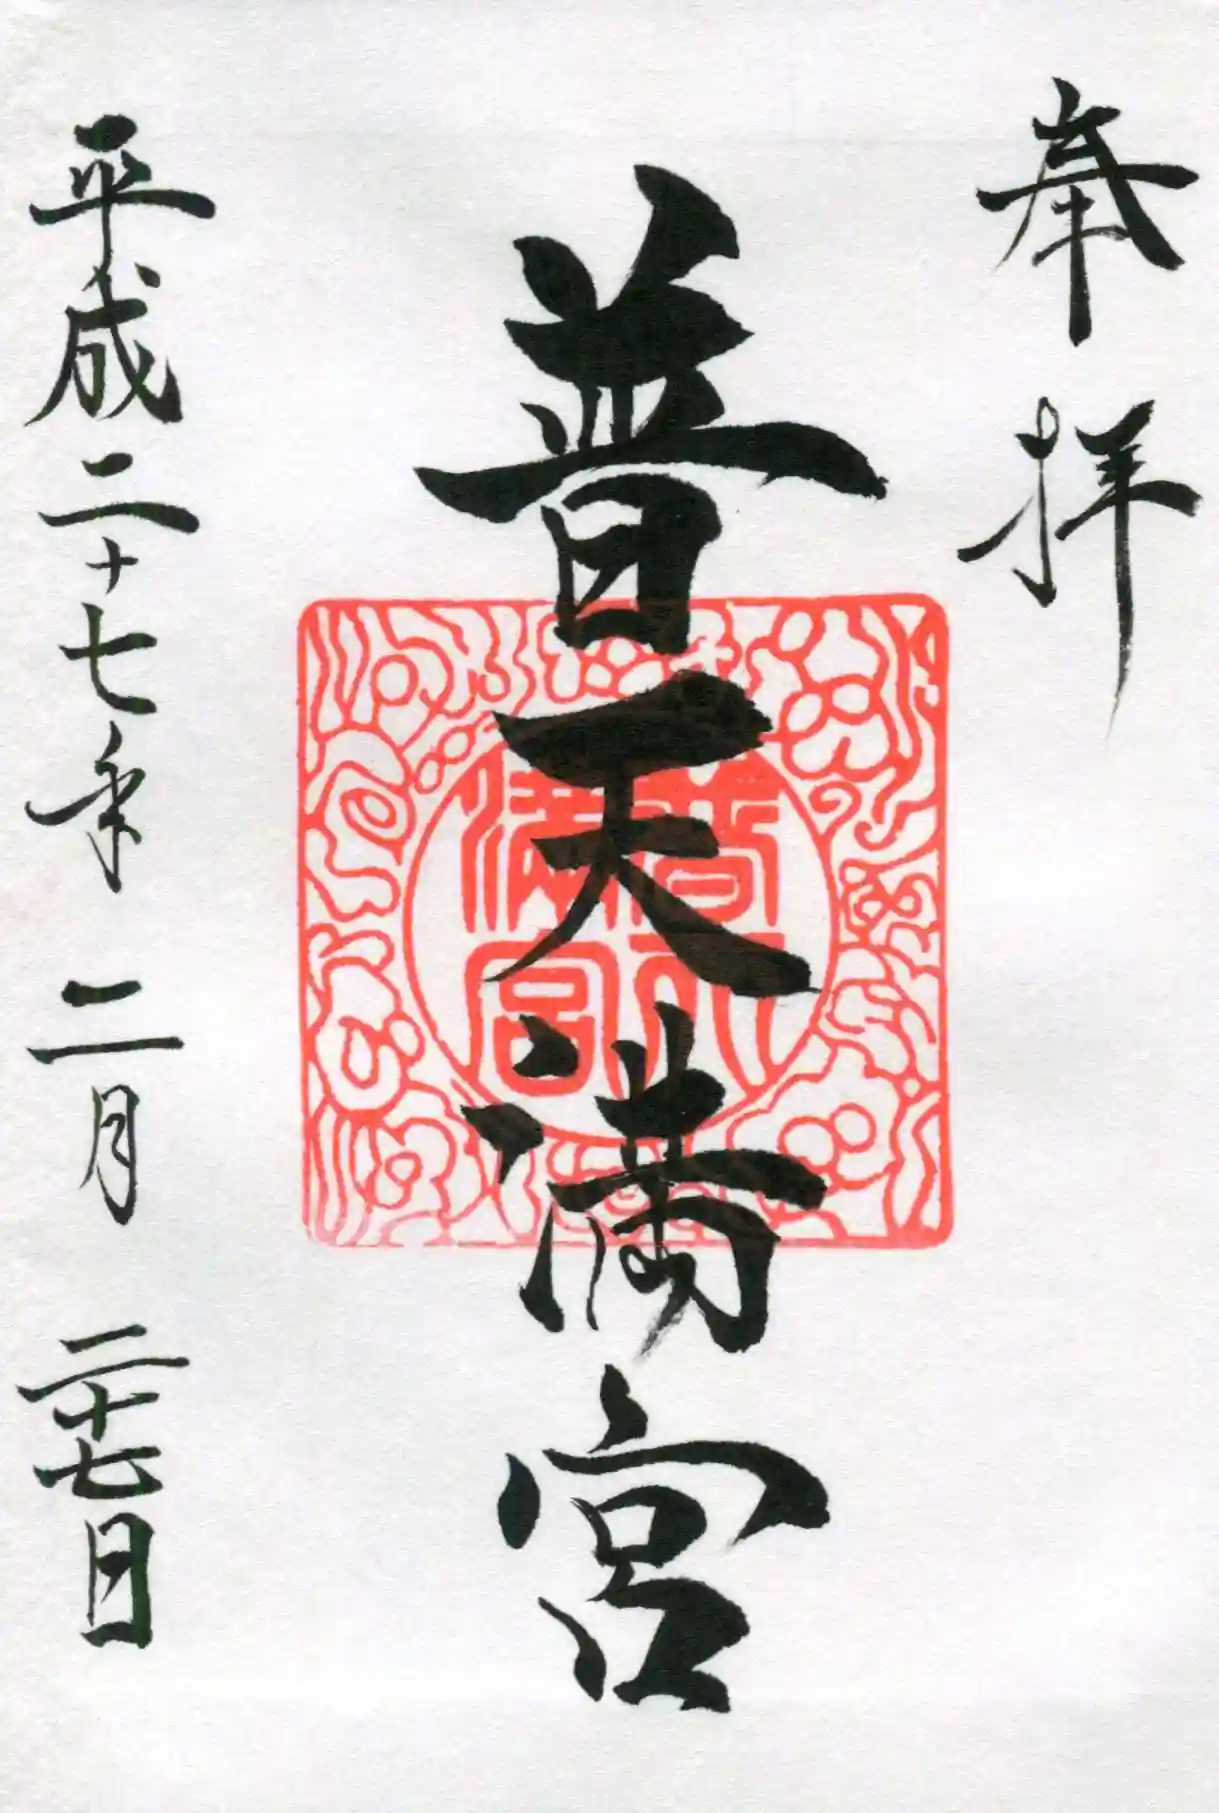 奉拝
普天満宮
平成二十七年二月二十七日